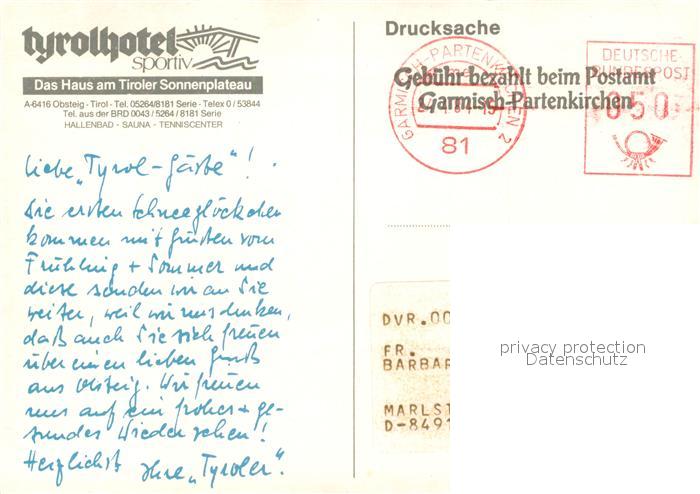 tyrolhotel
sportiv
Das Haus am Tiroler Sonnenplateau
A-6416 Obsteig - Tirol - Tel. 05264/8181 Serie - Telex 0 / 53844
Tel. aus der BRD 0043 / 5264 / 8181 Serie
HALLENBAD - SAUNA - TENNISCENTER
Liebe „Tyrol-Gäste"!
Die ersten Schneeglöckchen
kommen mit Grüßen vom
Frühling + Sommer und
diese senden wir an Sie
weiter, weil wir uns denken,
daß auch Sie sich freuen
über einen lieben Gruß
aus Obsteig. Wir freuen
uns auf ein frohes + ge-
sundes Wiedersehen!
Herzlichst Ihre „Tyroler".
Drucksache
GARMISCH-PARTENKIRCHEN 2
81
Gebühr bezahlt beim Postamt
Garmisch-Partenkirchen
DEUTSCHE
BUNDESPOST
050
DVR.00
FR.
BARBAR
MARLST
D-8491
privacy protection
Datenschutz